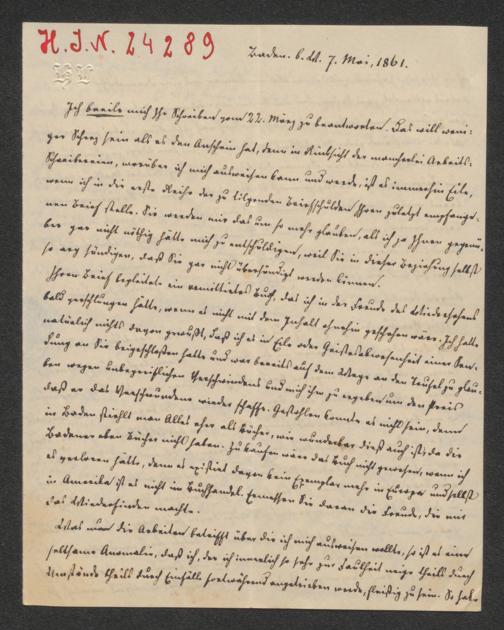 H.I.N. 24289
Baden. b. W. 7. Mai, 1861.
Ich beeile mich Ihr Schreiben vom 22. März zu beantworten. Das will weni-
ger Scherz sein als es den Anschein hat, denn in Rücksicht der mancherlei Arbeits-
Schreibereien, worüber ich mich ausweisen kann und werde, ist es immerhin Eile,
wenn ich in die erste Reihe der zu tilgenden Briefschulden Ihren zuletzt empfange-
nen Brief stelle. Sie werden mir das um so mehr glauben, als ich ja Ihnen gegenü-
ber gar nicht nöthig hätte mich zu entschuldigen, weil Sie in dieser Beziehung selbst
so arg sündigen, daß Sie gar nicht übersündigt werden können.
Ihren Brief begleitete ein remittirtes Buch, das ich in der Freude des Wiedersehens
bald verschlungen hätte, wenn es nicht mit dem Inhalt ohnehin geschehen wäre. Ich hatte
natürlich nichts davon gewußt, daß ich es in Eile oder Geistesabwesenheit einer Sen-
dung an Sie beigeschlossen hatte und war bereits auf dem Wege an den Teufel zu glau-
ben wegen unbegreiflichen Verschwindens und mich ihm zu ergeben um den Preis
daß er das Verschwundene wieder schaffe. Gestohlen konnte es nicht sein, denn
in Baden stiehlt man Alles eher als Bücher, wie wunderbar dieß auch ist, da die
Badener eben Bücher nicht haben. Zu kaufen wäre das Buch nicht gewesen, wenn ich
es verloren hätte, denn es existirt davon kein Exemplar mehr in Europa und selbst
in Amerika ist es nicht im Buchhandel. Ermessen Sie daran die Freude, die mir
das Wiederfinden machte.
Was nun die Arbeiten betrifft über die ich mich ausweisen wollte, so ist es eine
seltsame Anomalie, daß ich, der ich innerlich so sehr zur Faulheit neige theils durch
Umstände theils durch Einfälle fortwährend angetrieben werde, fleißig zu sein. So habe